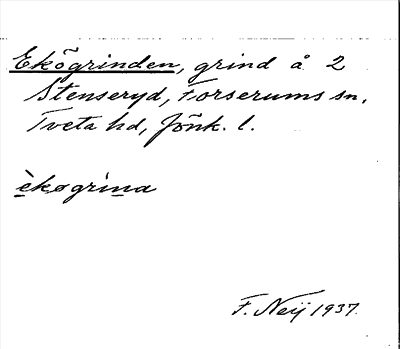 Ekögrinden, grind å 2
Stenseryd, Forserums sn,
Tveta hd, Jönk. l.
èkøgrìna
F. Neij 1937.